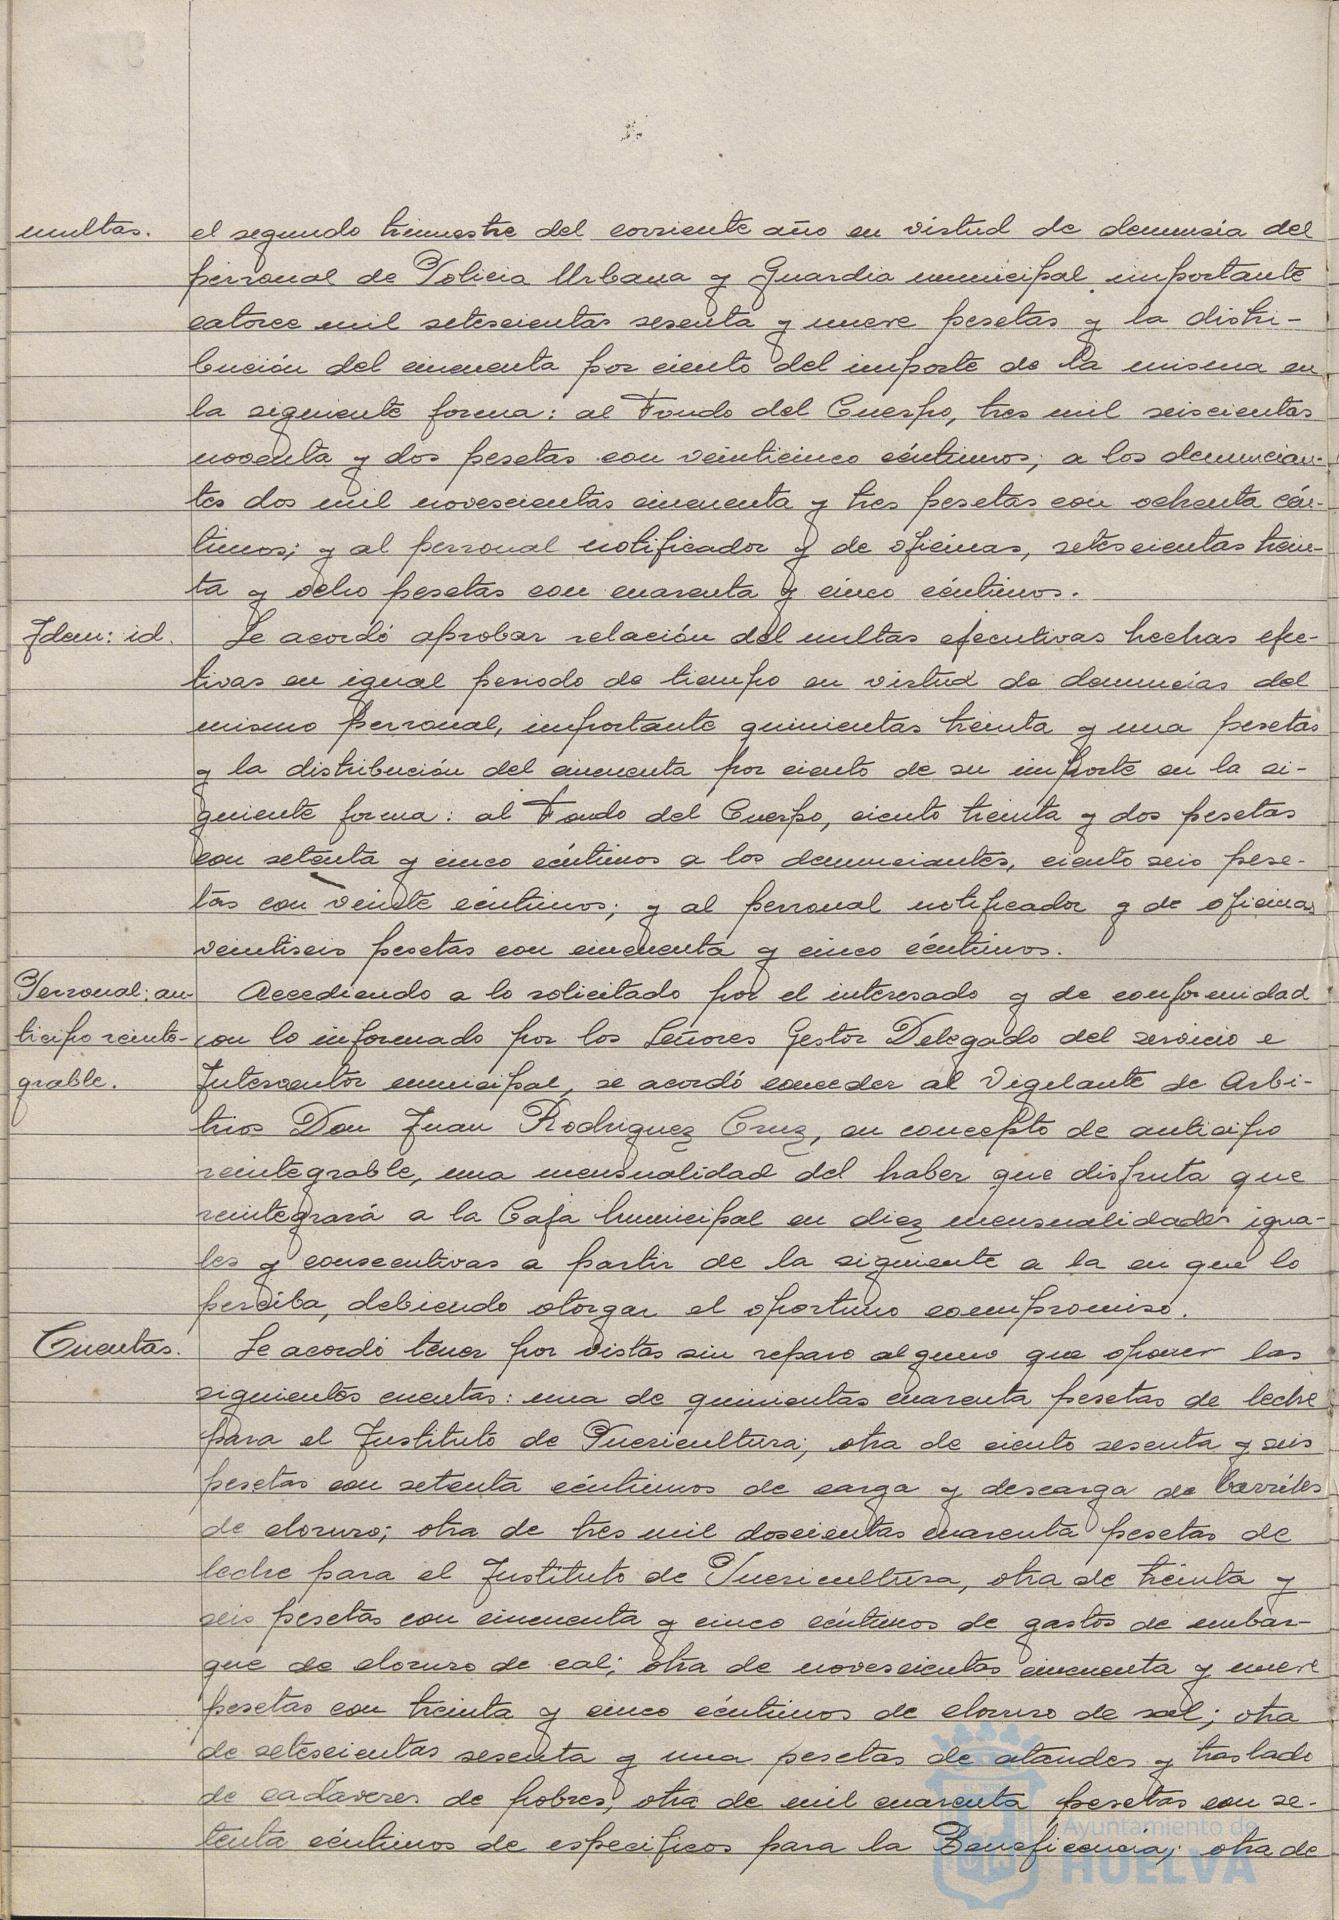 multas. el segundo trimestre del corriente año en virtud de denuncia del
personal de Policia Urbana y Guardia municipal importante
catorce mil setescientas sesenta y nueve pesetas y la distri-
bución del cincuenta por ciento del importe de la misma en
la siguiente forma: al Fondo del Cuerpo, tres mil seiscientas
noventa y dos pesetas con veinticinco céntimos; a los denuncian-
tes dos mil novescientas cincuenta y tres pesetas con ochenta cén-
timos; y al personal notificador y de oficinas, setescientas trein-
ta y ocho pesetas con cuarenta y cinco céntimos.
Idem: id. Se acordó aprobar relación del multas ejecutivas hechas efec-
tivas en igual periodo de tiempo en virtud de denuncias del
mismo personal, importante quinientas treinta y una pesetas
y la distribución del cincuenta por ciento de su importe en la si-
guiente forma: al Fondo del Cuerpo, ciento treinta y dos pesetas
con setenta y cinco céntimos a los denunciantes, ciento seis pese-
tas con veinte céntimos; y al personal notificador y de oficinas
veintiseis pesetas con cincuenta y cinco céntimos.
Personal: an- Accediendo a lo solicitado por el interesado y de conformidad
ticipo reinte- con lo informado por los Señores Gestor Delegado del servicio e
grable. Interventor municipal, se acordó conceder al Vigilante de Arbi-
trios Don Juan Rodriguez Cruz, en concepto de anticipo
reintegrable, una mensualidad del haber que disfruta que
reintegrará a la Caja municipal en diez mensualidades igua-
les y consecutivas a partir de la siguiente a la en que lo
perciba, debiendo otorgar el oportuno compromiso.
Cuentas. Se acordó tener por vistas sin reparo alguno que oponer las
siguientes cuentas: una de quinientas cuarenta pesetas de leche
para el Instituto de Puericultura; otra de ciento sesenta y seis
pesetas con setenta céntimos de carga y descarga de barriles
de cloruro; otra de tres mil doscientas cuarenta pesetas de
leche para el Instituto de Puericultura, otra de treinta y
seis pesetas con cincuenta y cinco céntimos de gastos de embar-
que de cloruro de cal; otra de novescientas cincuenta y nueve
pesetas con treinta y cinco céntimos de cloruro de sal; otra
de setescientas sesenta y una pesetas de ataudes y traslado
de cadáveres de pobres, otra de mil cuarenta pesetas con se-
tenta céntimos de especificos para la Beneficencia; otra de
Ayuntamiento de
HUELVA